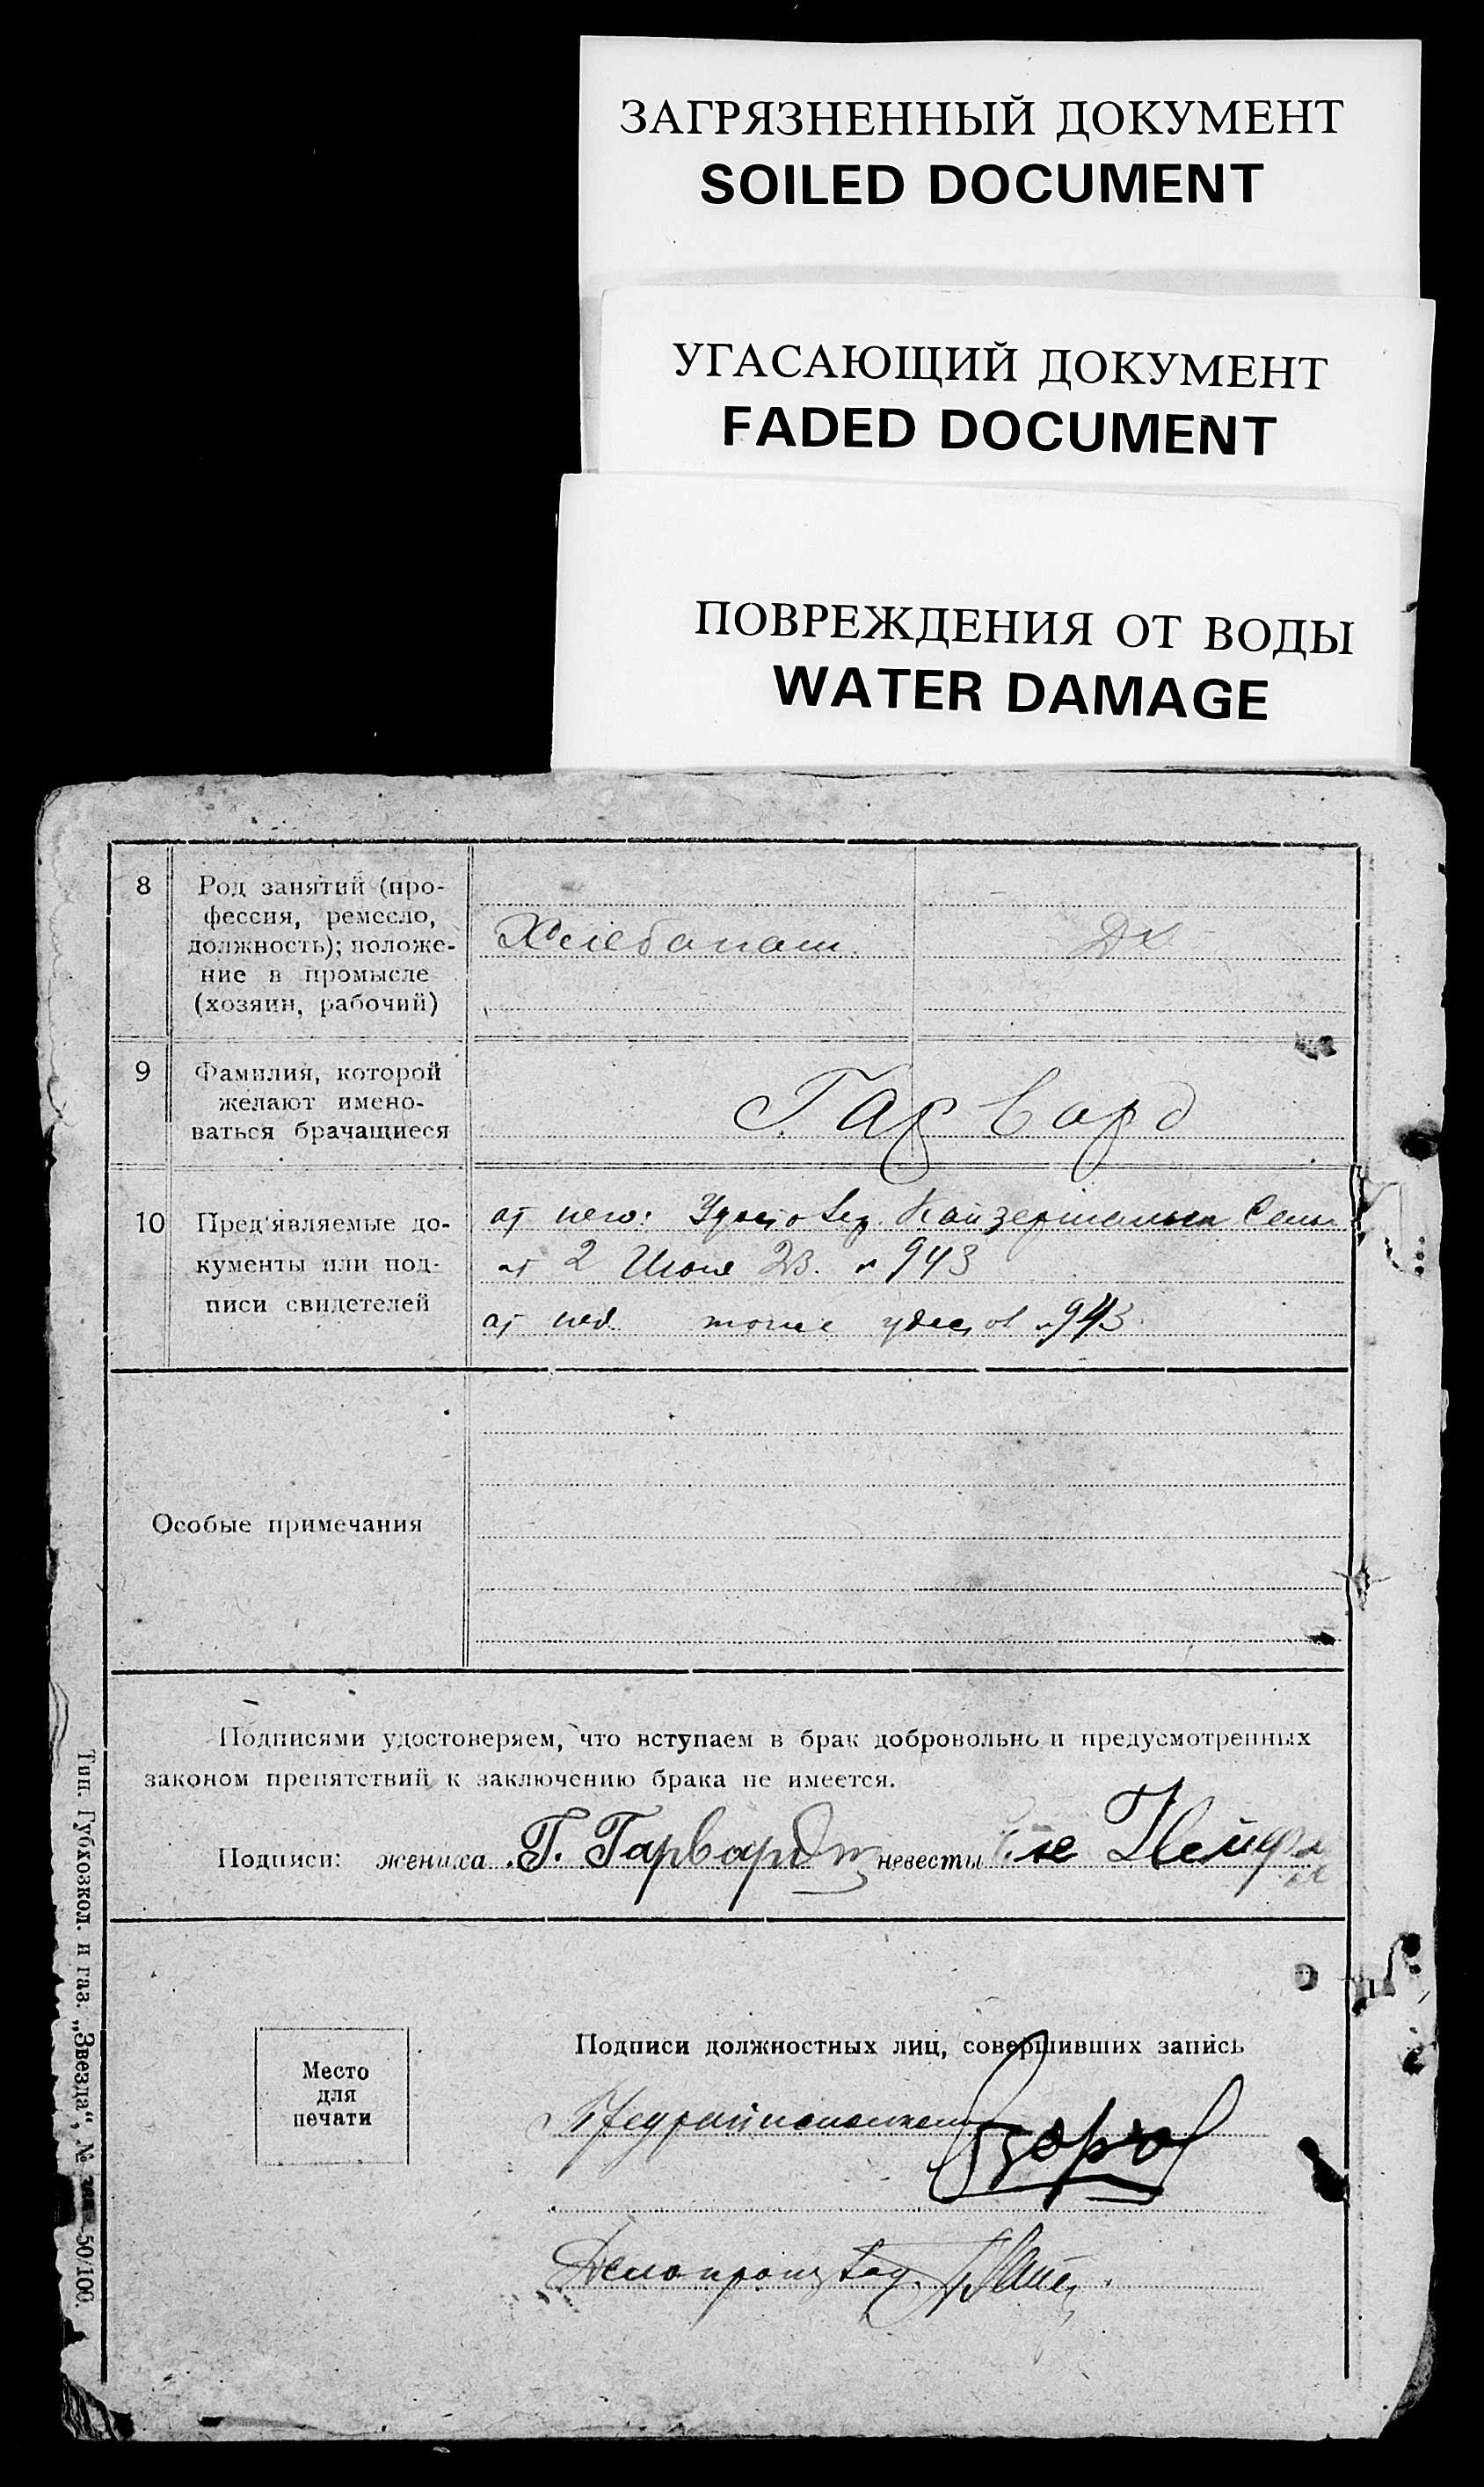 ЗАГРЯЗНЕННЫЙ ДОКУМЕНТ
SOILED DOCUMENT
УГАСАЮЩИЙ ДОКУМЕНТ
FADED DOCUMENT
ПОВРЕЖДЕНИЯ ОТ ВОДЫ
WATER DAMAGE
8
Род занятий (про-
фессия, ремесло,
должность); положе-
ние в промысле
(хозяин, рабочий)
Хлебопаш.
Дх
9
Фамилия, которой
желают имено-
ваться брачащиеся
Гарвард
10
Пред'являемые до-
кументы или под-
писи свидетелей
от него: Удостовер. Кайзерталька Сель
от 2 Июня 23. № 943
от нев. тоже удост ов №943.
Особые примечания
Подписями удостоверяем, что вступаем в брак добровольно и предусмотренных
законом препятствий к заключению брака не имеется.
Подписи: жениха Г. Гарвардт невесты
Подписи должностных лиц, совершивших запись
Место
для
печати
Предрайисполкома
Делопроизвод.
Тип. Губхозкол. и газ. „Звезда“, № 50/100.